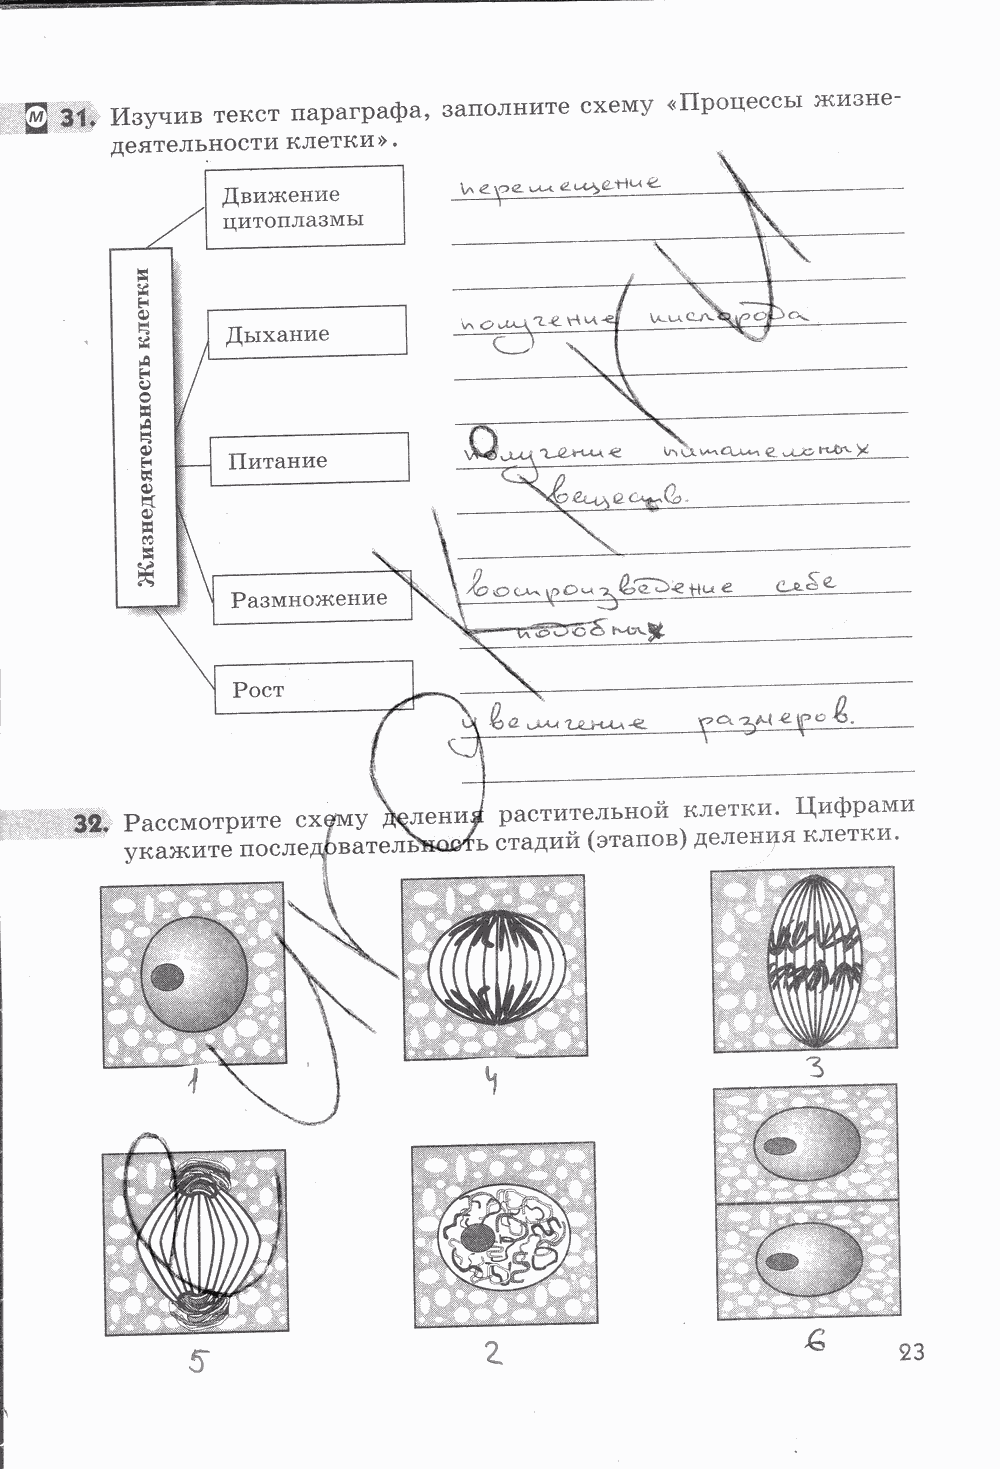 М 31. Изучив текст параграфа, заполните схему «Процессы жизне-
деятельности клетки».
Жизнедеятельность клетки
Движение
цитоплазмы
перемещение
Дыхание
получение кислорода
Питание
получение питательных
веществ.
Размножение
воспроизведение себе
подобных
Рост
увеличение размеров.
32. Рассмотрите схему деления растительной клетки. Цифрами
укажите последовательность стадий (этапов) деления клетки.
1
4
3
5
2
6
23